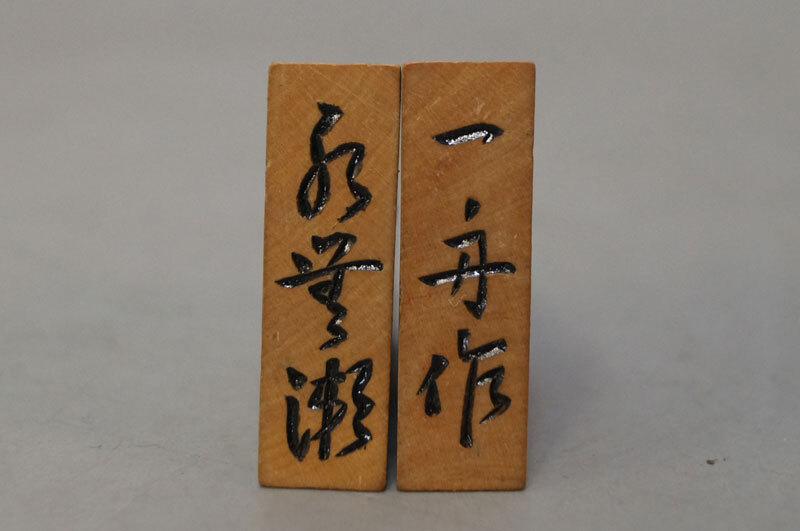 一舟作
水無瀬